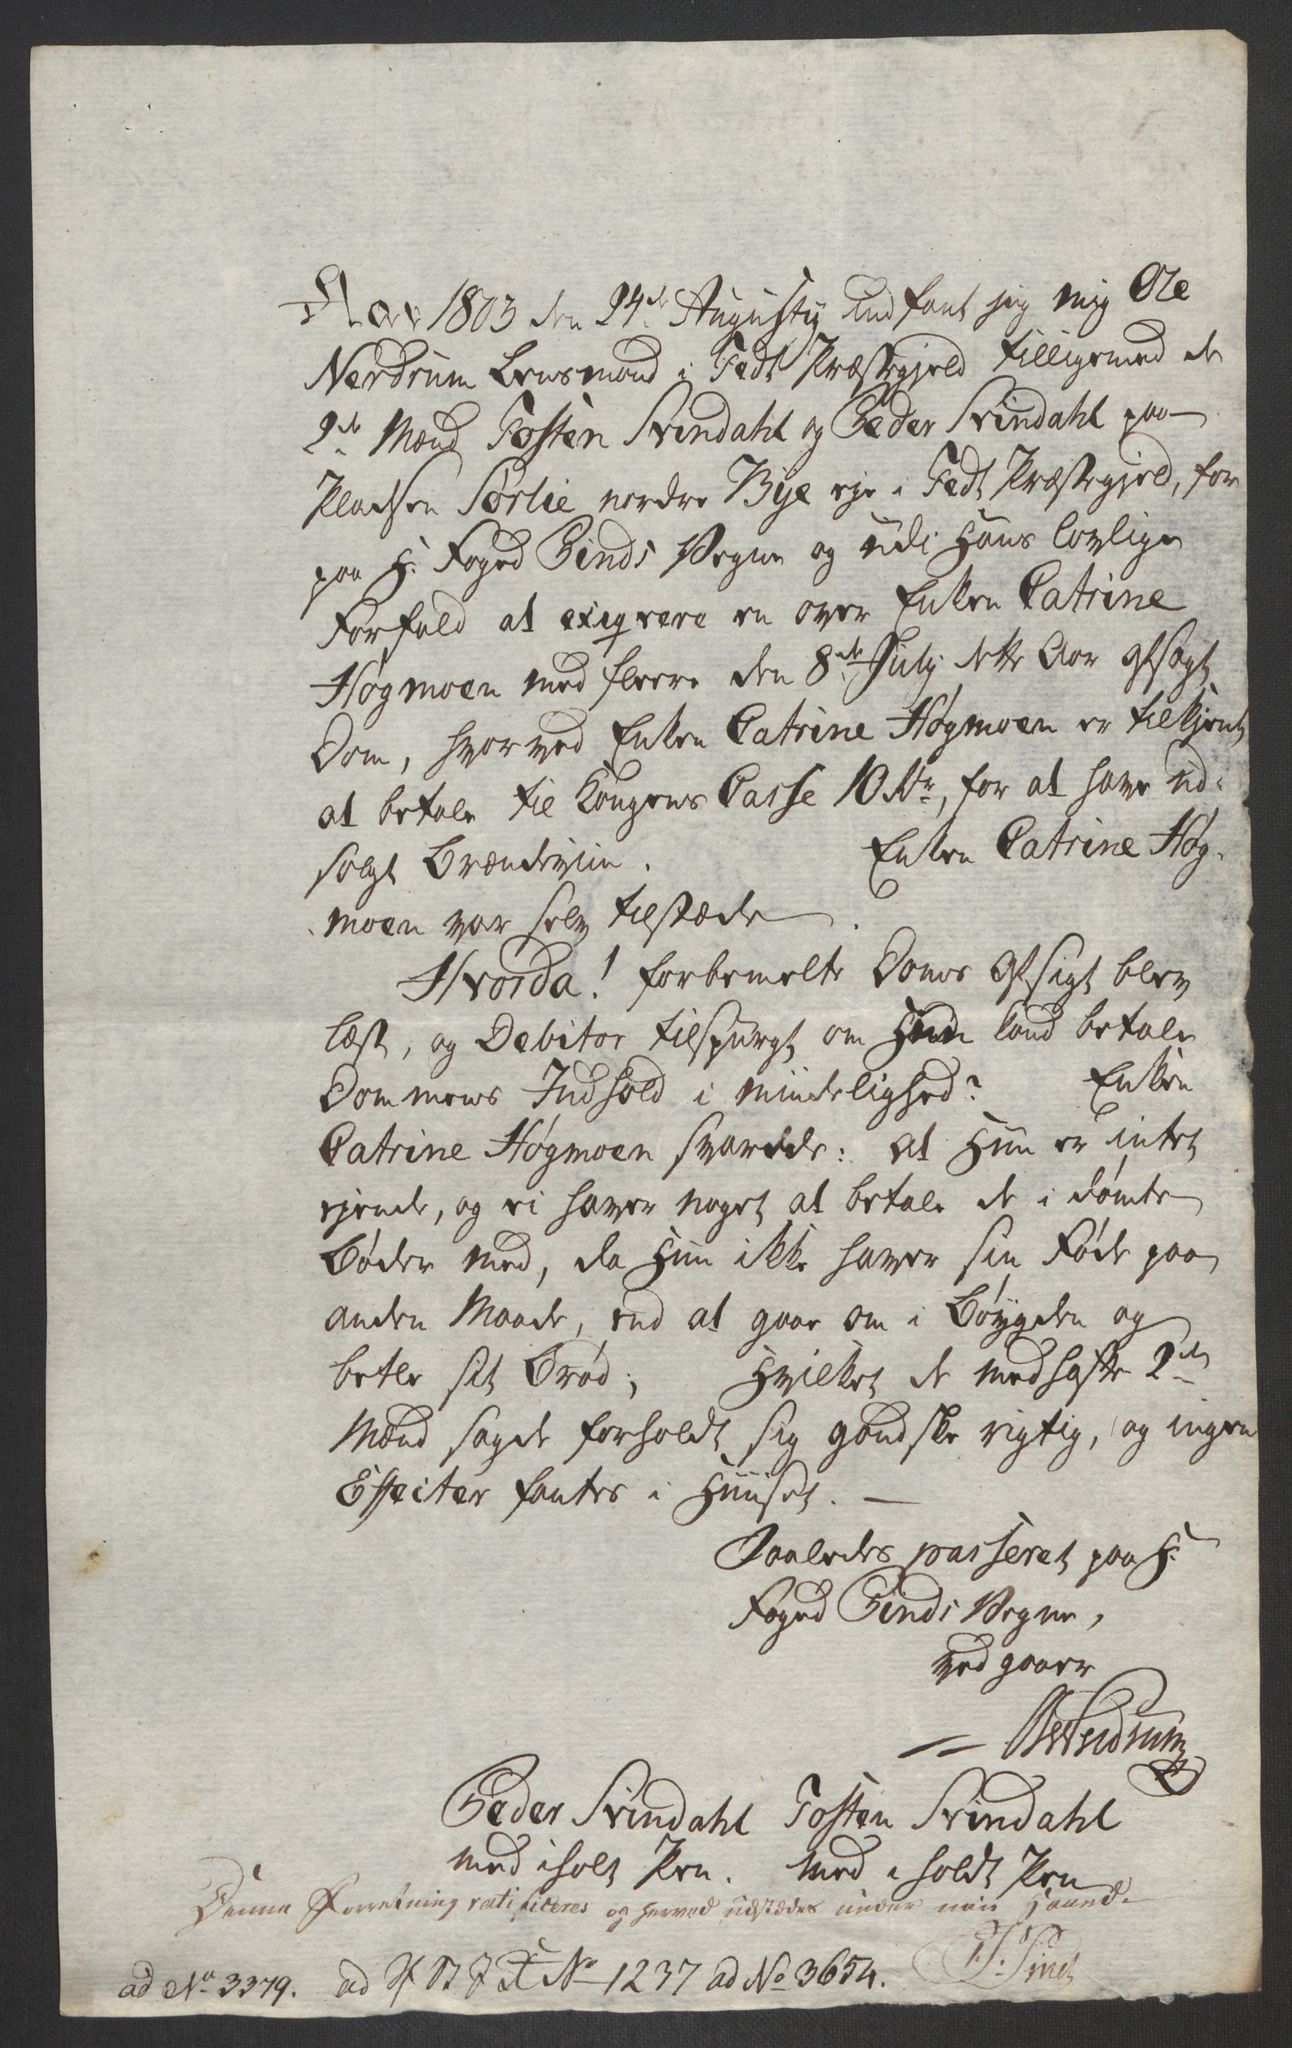 Aar 1803 den 24de Augusty indfant jeg mig Ole
Nerdrum Lensmand i Fedt Præstegjeld tilligemed de
2de Mænd Tosten Svindahl og Peder Svindahl paa
Pladsen Sørlie nordre Bye eje i Fedt Præstegjeld, for
paa H: Foged Sinds Vegne og udi Hans lovlige
Forfald at exiqvere en over Enken Catrine
Høgmoen med fleere den 8de July dette Aar afsagt
Dom, hvorved Enken Catrine Høgmoen er tilkjent
at betale til Kongens Casse 10 Rdr, for at have ud-
solgt Brændeviin. Enken Catrine Høg-
moen var selv tilstæde.
Hvorda! forbemelte Doms Afsigt blev
læst, og Debitor tilspurgt, om Hun kand betale
Dommens Indhold i Mindelighed? Enken
Catrine Høgmoen svarede: at Hun er intet
ejende, og ei haver noget at betale de idømte
Bøder med, da Hun ikke haver sin Føde paa
anden Maade, end at gaae om i Bøygden og
betle sit Brød; Hvilket de medhafte 2de
Mænd sagde forholdt sig gandske rigtig, og ingen
Effecter fantes i Huuset. —
Saaledes passeret paa H:
Foged Sinds Vegne,
ved gaaer
ONerdrum
Peder Svindahl Tosten Svindahl
med iholt Pen. med iholdt Pen
Denne Forretning ratificeres og herved udstædes under min Haand.
Sind
ad No 3379. ad No 1237 ad No 3654.